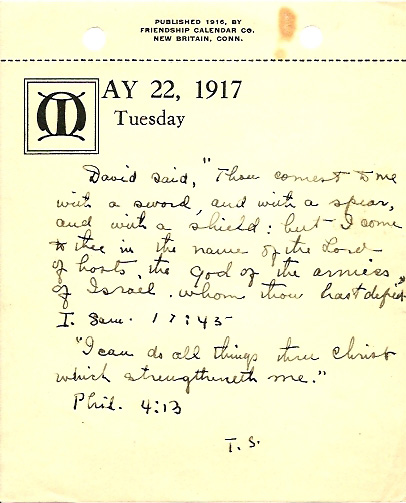 PUBLISHED 1916, BY
FRIENDSHIP CALENDAR CO.
NEW BRITAIN, CONN.
MAY 22, 1917
Tuesday
David said, "Thou comest to me
with a sword, and with a spear,
and with a shield: but I come
to thee in the name of the Lord
of hosts, the God of the armies
of Israel, whom thou hast defied"
I. Sam. 17:45
"I can do all things thru Christ
which strengtheneth me."
Phil. 4:13
T. S.